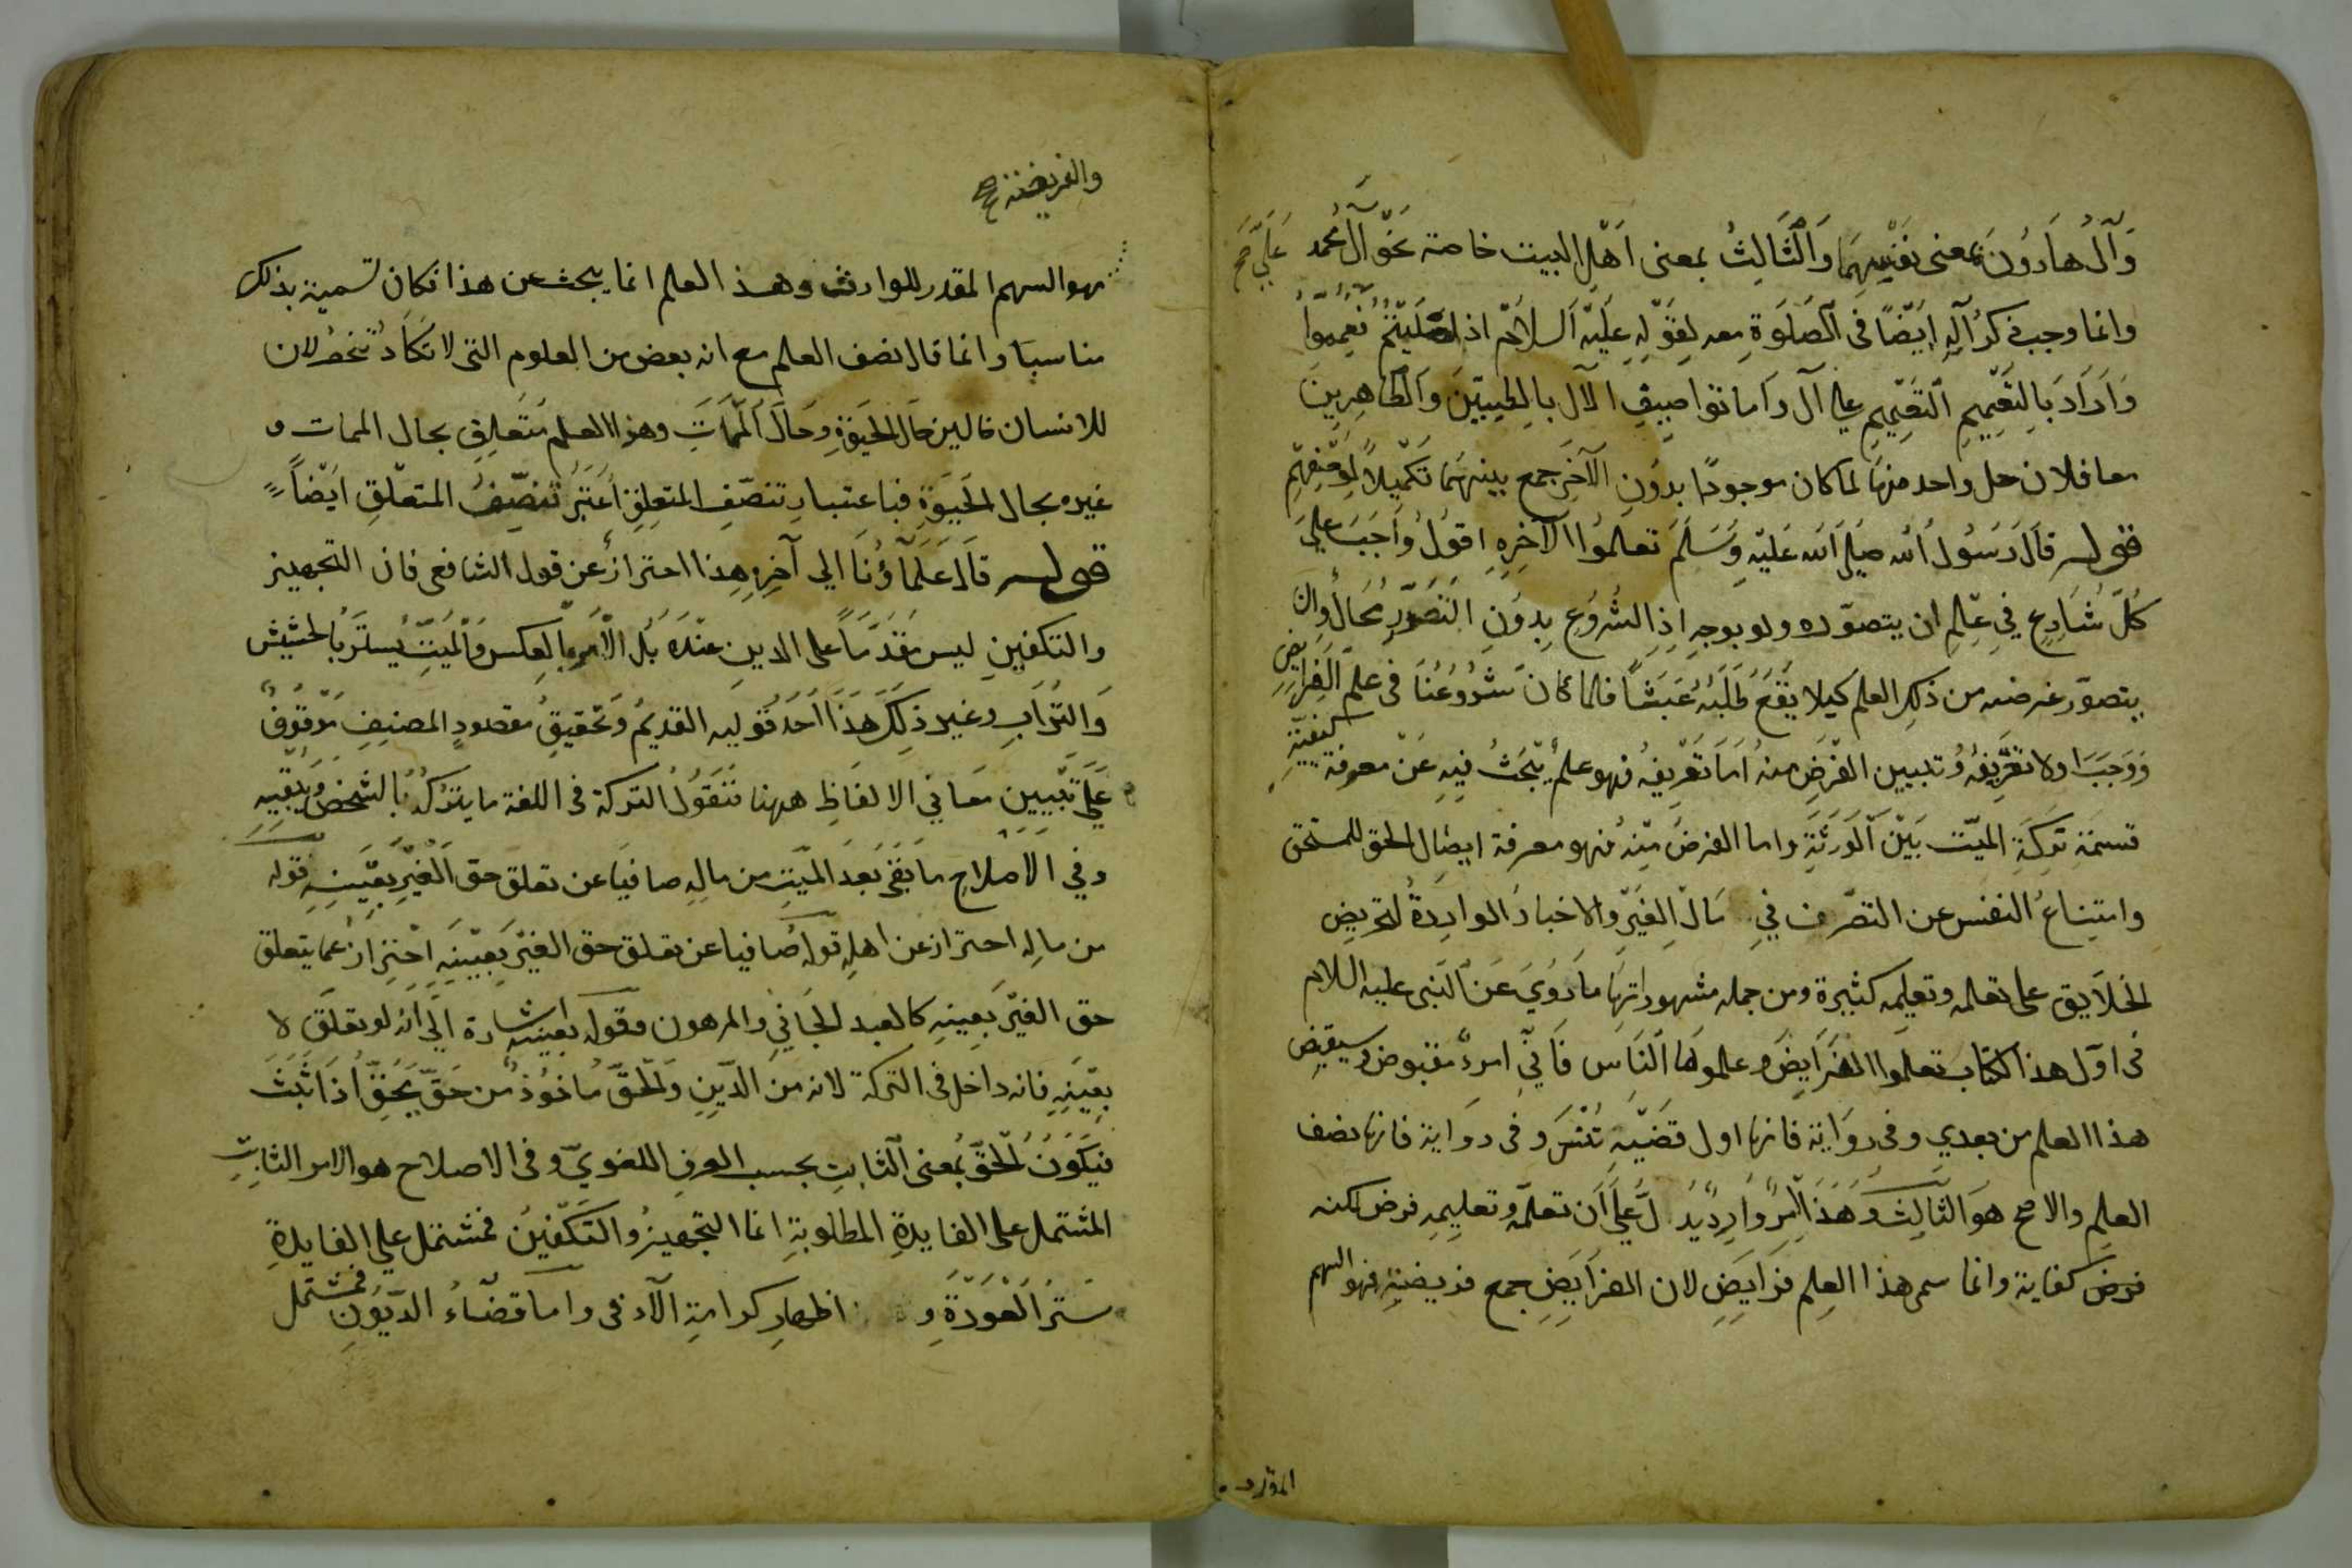 وآل هارون بمعنى نفسهما والثالث بمعنى اهل البيت خاصة نحو آل محمد
وانما وجب ذكر آله ايضا فى الصلوة معه لقوله عليه السلام اذا صليتم فعمموا
واراد بالتعميم التعميم على آل واما توصيف الآل بالطيبين والطاهرين
معا فلان كل واحد منهما لما كان موجودا بدون الآخر جمع بينهما تكميلا لوصفهم
قوله قال رسول الله صلى الله عليه وسلم تعلموا الآخره اقول واجب على
كل شارع في علم ان يتصوره ولو بوجه اذ الشروع بدون التصور محال وان
يتصور غرضه من ذلك العلم كيلا يقع طلبه عبثا فلما كان شروعنا فى علم الفرايض
ووجب اولا تعريفه وتبيين الغرض منه اما تعريفه فهو علم يبحث فيه عن معرفة كيفية
قسمة تركة الميت بين الورثة واما الغرض منه فهو معرفة ايصال الحق للمستحق
وامتناع النفس عن التصرف في مال الغير والاخبار الواردة لتحريض
الخلايق على تعلمه وتعليمه كثيرة ومن جمله مشهوراتها ما روي عن النبى عليه السلام
فى اول هذا الكتاب تعلموا الفرايض وعلموها الناس فاني امرء مقبوض وسيقبض
هذا العلم من بعدي وفى رواية فانها اول قضية تنسى وفى رواية فانها نصف
العلم والاصح هو الثالث وهذا الامر وارد يدل على ان تعلمه وتعليمه فرض لكنه
فرض كفاية وانما سمى هذا العلم فرايض لان الفرايض جمع فريضة فهو السهم
المقدر
والفريضة صح
فهو السهم المقدر للوارث وهذا العلم انما يبحث عن هذا فكان تسمية بذلك
مناسبا وانما قال نصف العلم مع انه بعض من العلوم التى لا تكاد تنحصر لان
للانسان حالين حال الحيوة وحال الممات وهذا العلم متعلق بحال الممات و
غيره بحال الحيوة فباعتبار تنصف المتعلق اعتبر تنصيف المتعلق ايضا
قوله قال علماؤنا الي آخره هذا احتراز عن قول الشافعى فان التجهيز
والتكفين ليس مقدما على الدين عنده بل الامر بالعكس والميت يستر بالحشيش
والتراب وغير ذلك هذا احد قوليه القديم وتحقيق مقصود المصنف موقوف
على تبيين معاني الالفاظ ههنا فنقول التركة فى اللغة ما يتركه الشخص ويبقيه
وفي الاصلاح ما بقى بعد الميت من ماله صافيا عن تعلق حق الغير بعينه قوله
من ماله احتراز عن اهله قوله صافيا عن تعلق حق الغير بعينه احتراز عما يتعلق
حق الغير بعينه كالعبد الجاني والمرهون وقوله بعينه اشارة الي انه لو تعلق لا
بعينه فانه داخل فى التركة لانه من الدين والحق ماخوذ من حق يحق اذا ثبت
فيكون الحق بمعنى الثابت بحسب العرف اللغوي وفى الاصلاح هو الامر الثابت
المشتمل على الفايدة المطلوبة اما التجهيز والتكفين فمشتمل علي الفايدة
ستر العورة و اظهار كرامة الآدمى واما قضاء الديون فمشتمل